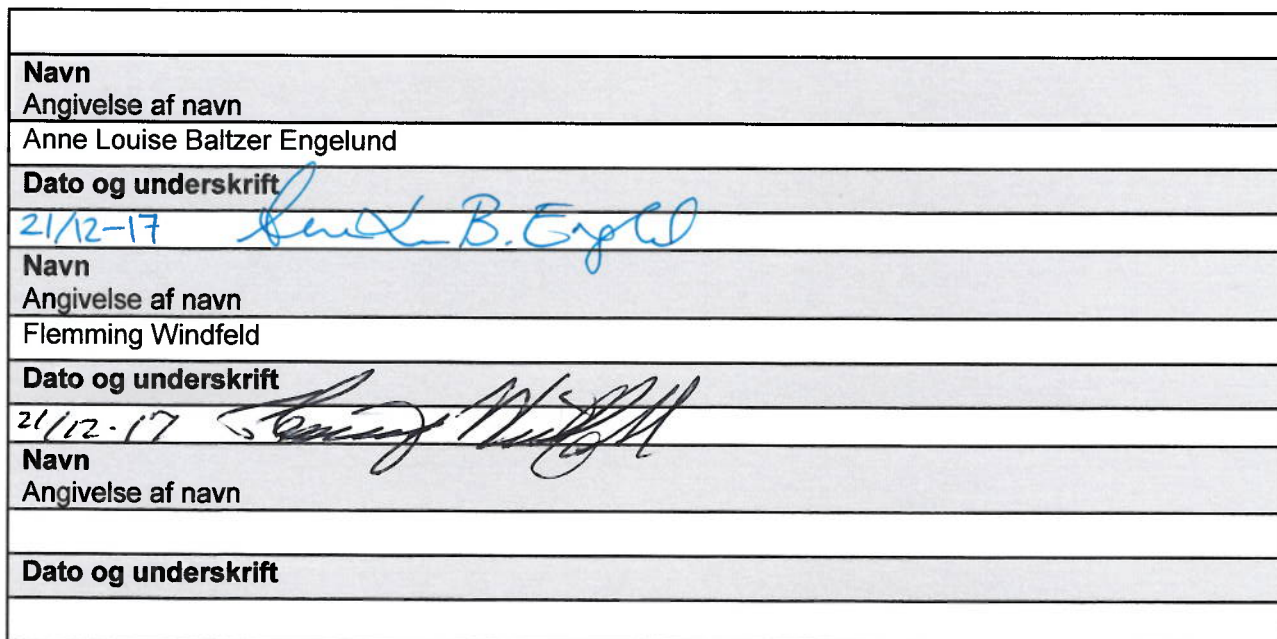 Navn
Angivelse af navn
Anne Louise Baltzer Engelund
Dato og underskrift
21/12-17 B. Engelund
Navn
Angivelse af navn
Flemming Windfeld
Dato og underskrift
21/12-17 Flemming Windfeld
Navn
Angivelse af navn
Dato og underskrift